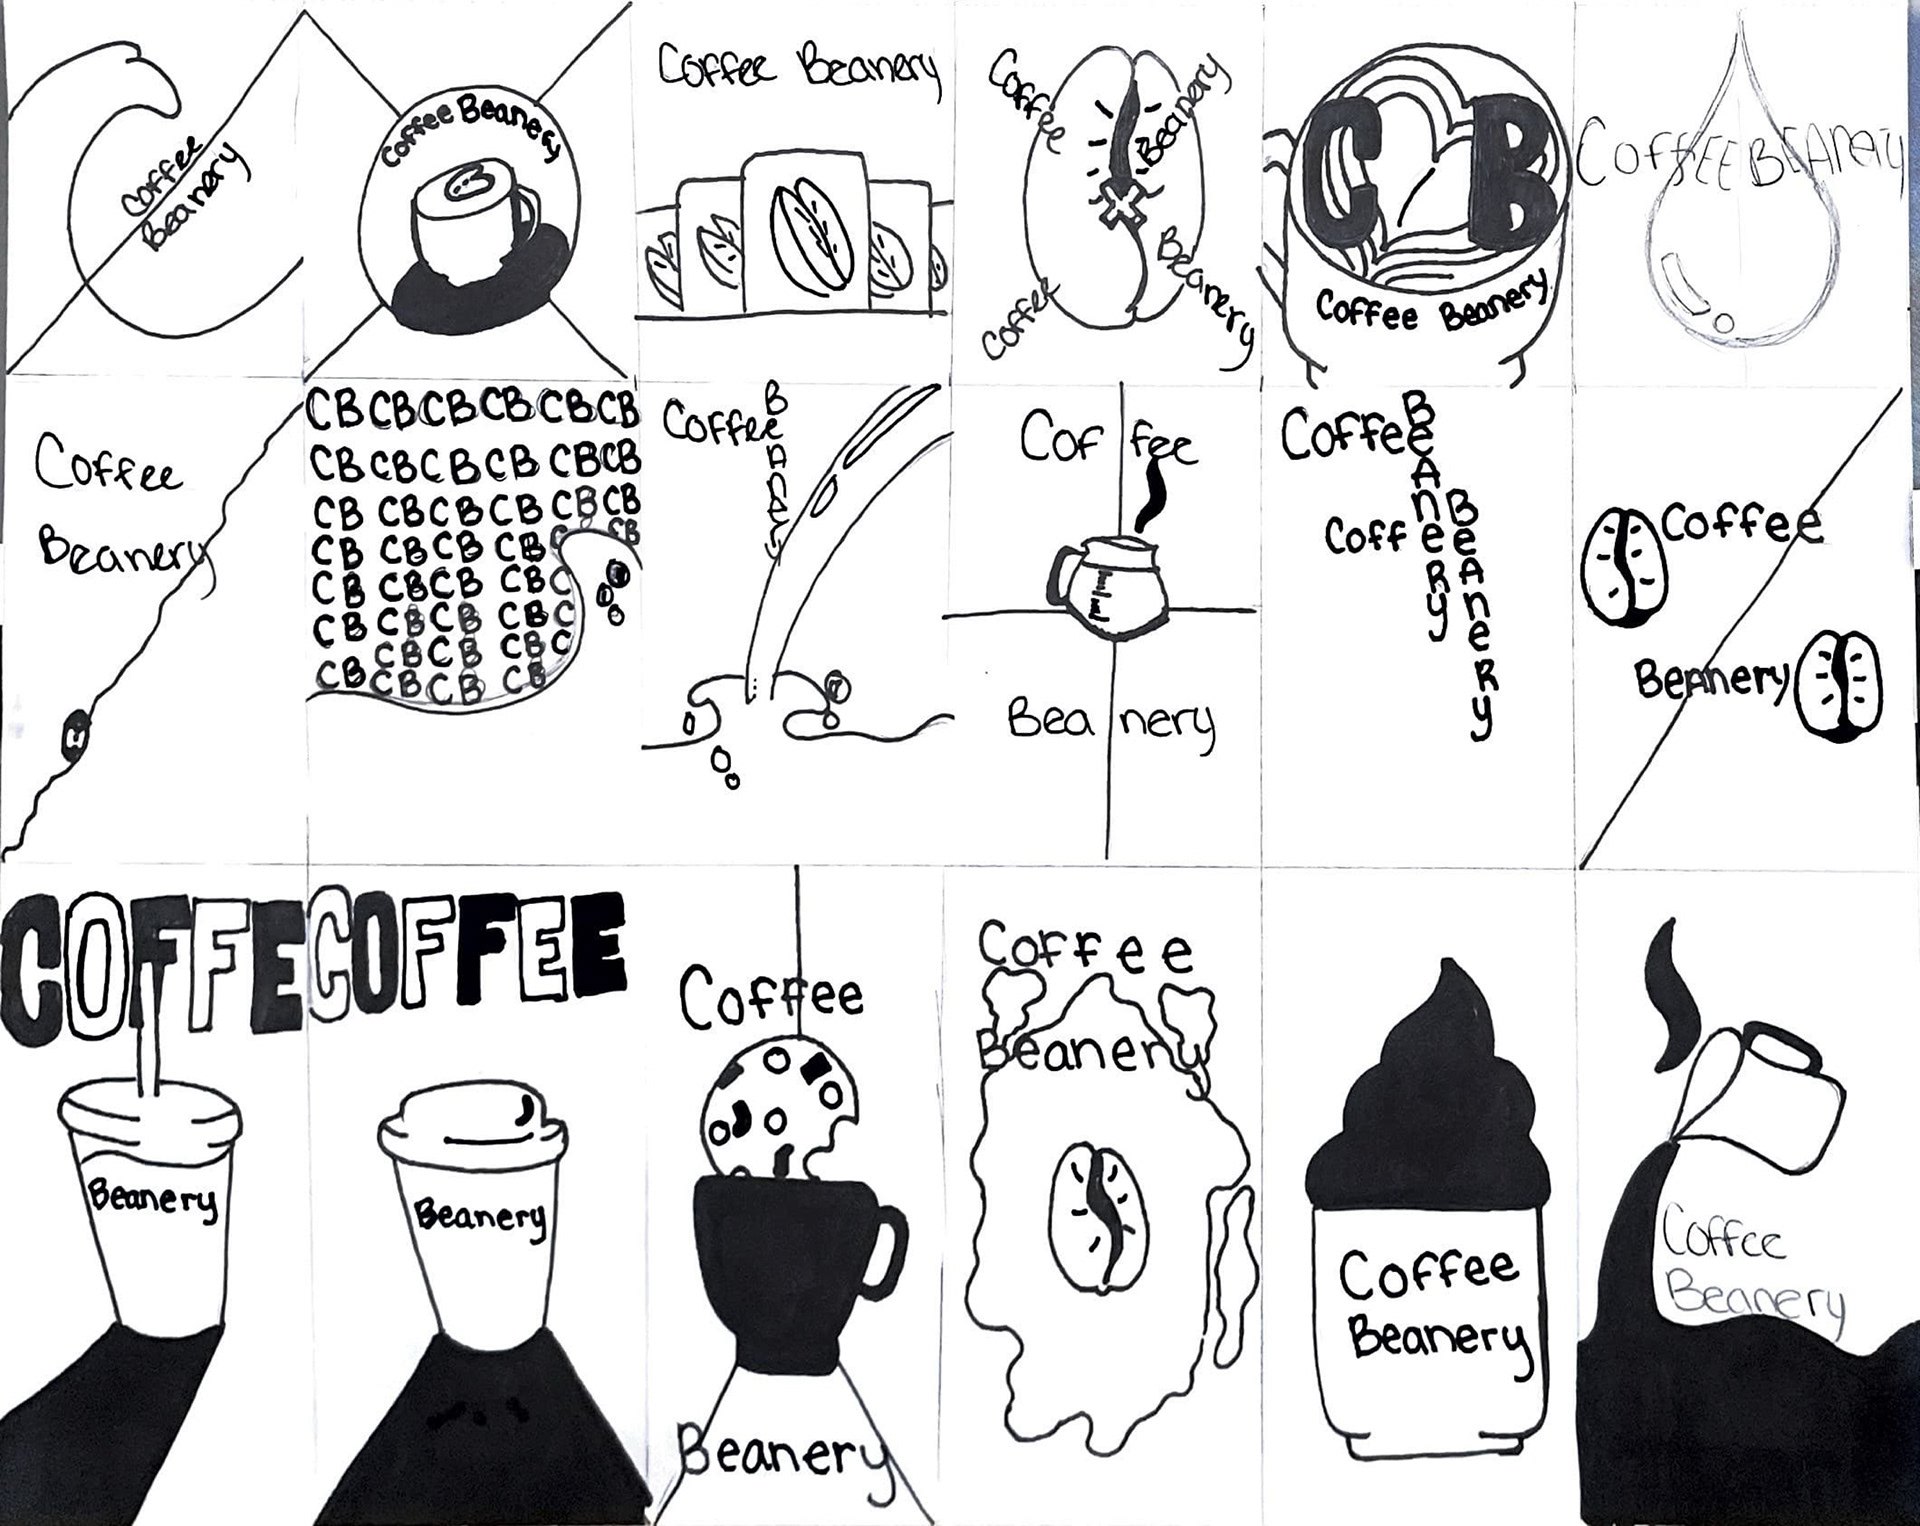 Coffee
Beanery
Coffee Beanery
Coffee Beanery
Coffee
Beanery
Coffee
Beanery
C B
Coffee Beanery
CoffEE BEANERy
Coffee
Beanery
CB CB CB CB CB CB
CB CB CB CB CB CB
CB CB CB CB CB CB
CB CB CB CB C CB
CB CB CB CB C
CB CB CB CB C
CB CB CB C
CB CB CB CB
Coffee
BeAnery
Cof fee
Bea nery
Coffee
BeAneRy
Coffee
BeAneRy
Coffee
BeAnery
COFFE
Beanery
COFFEE
Beanery
Coffee
Beanery
Coffee
Beanery
Coffee
Beanery
Coffee
Beanery